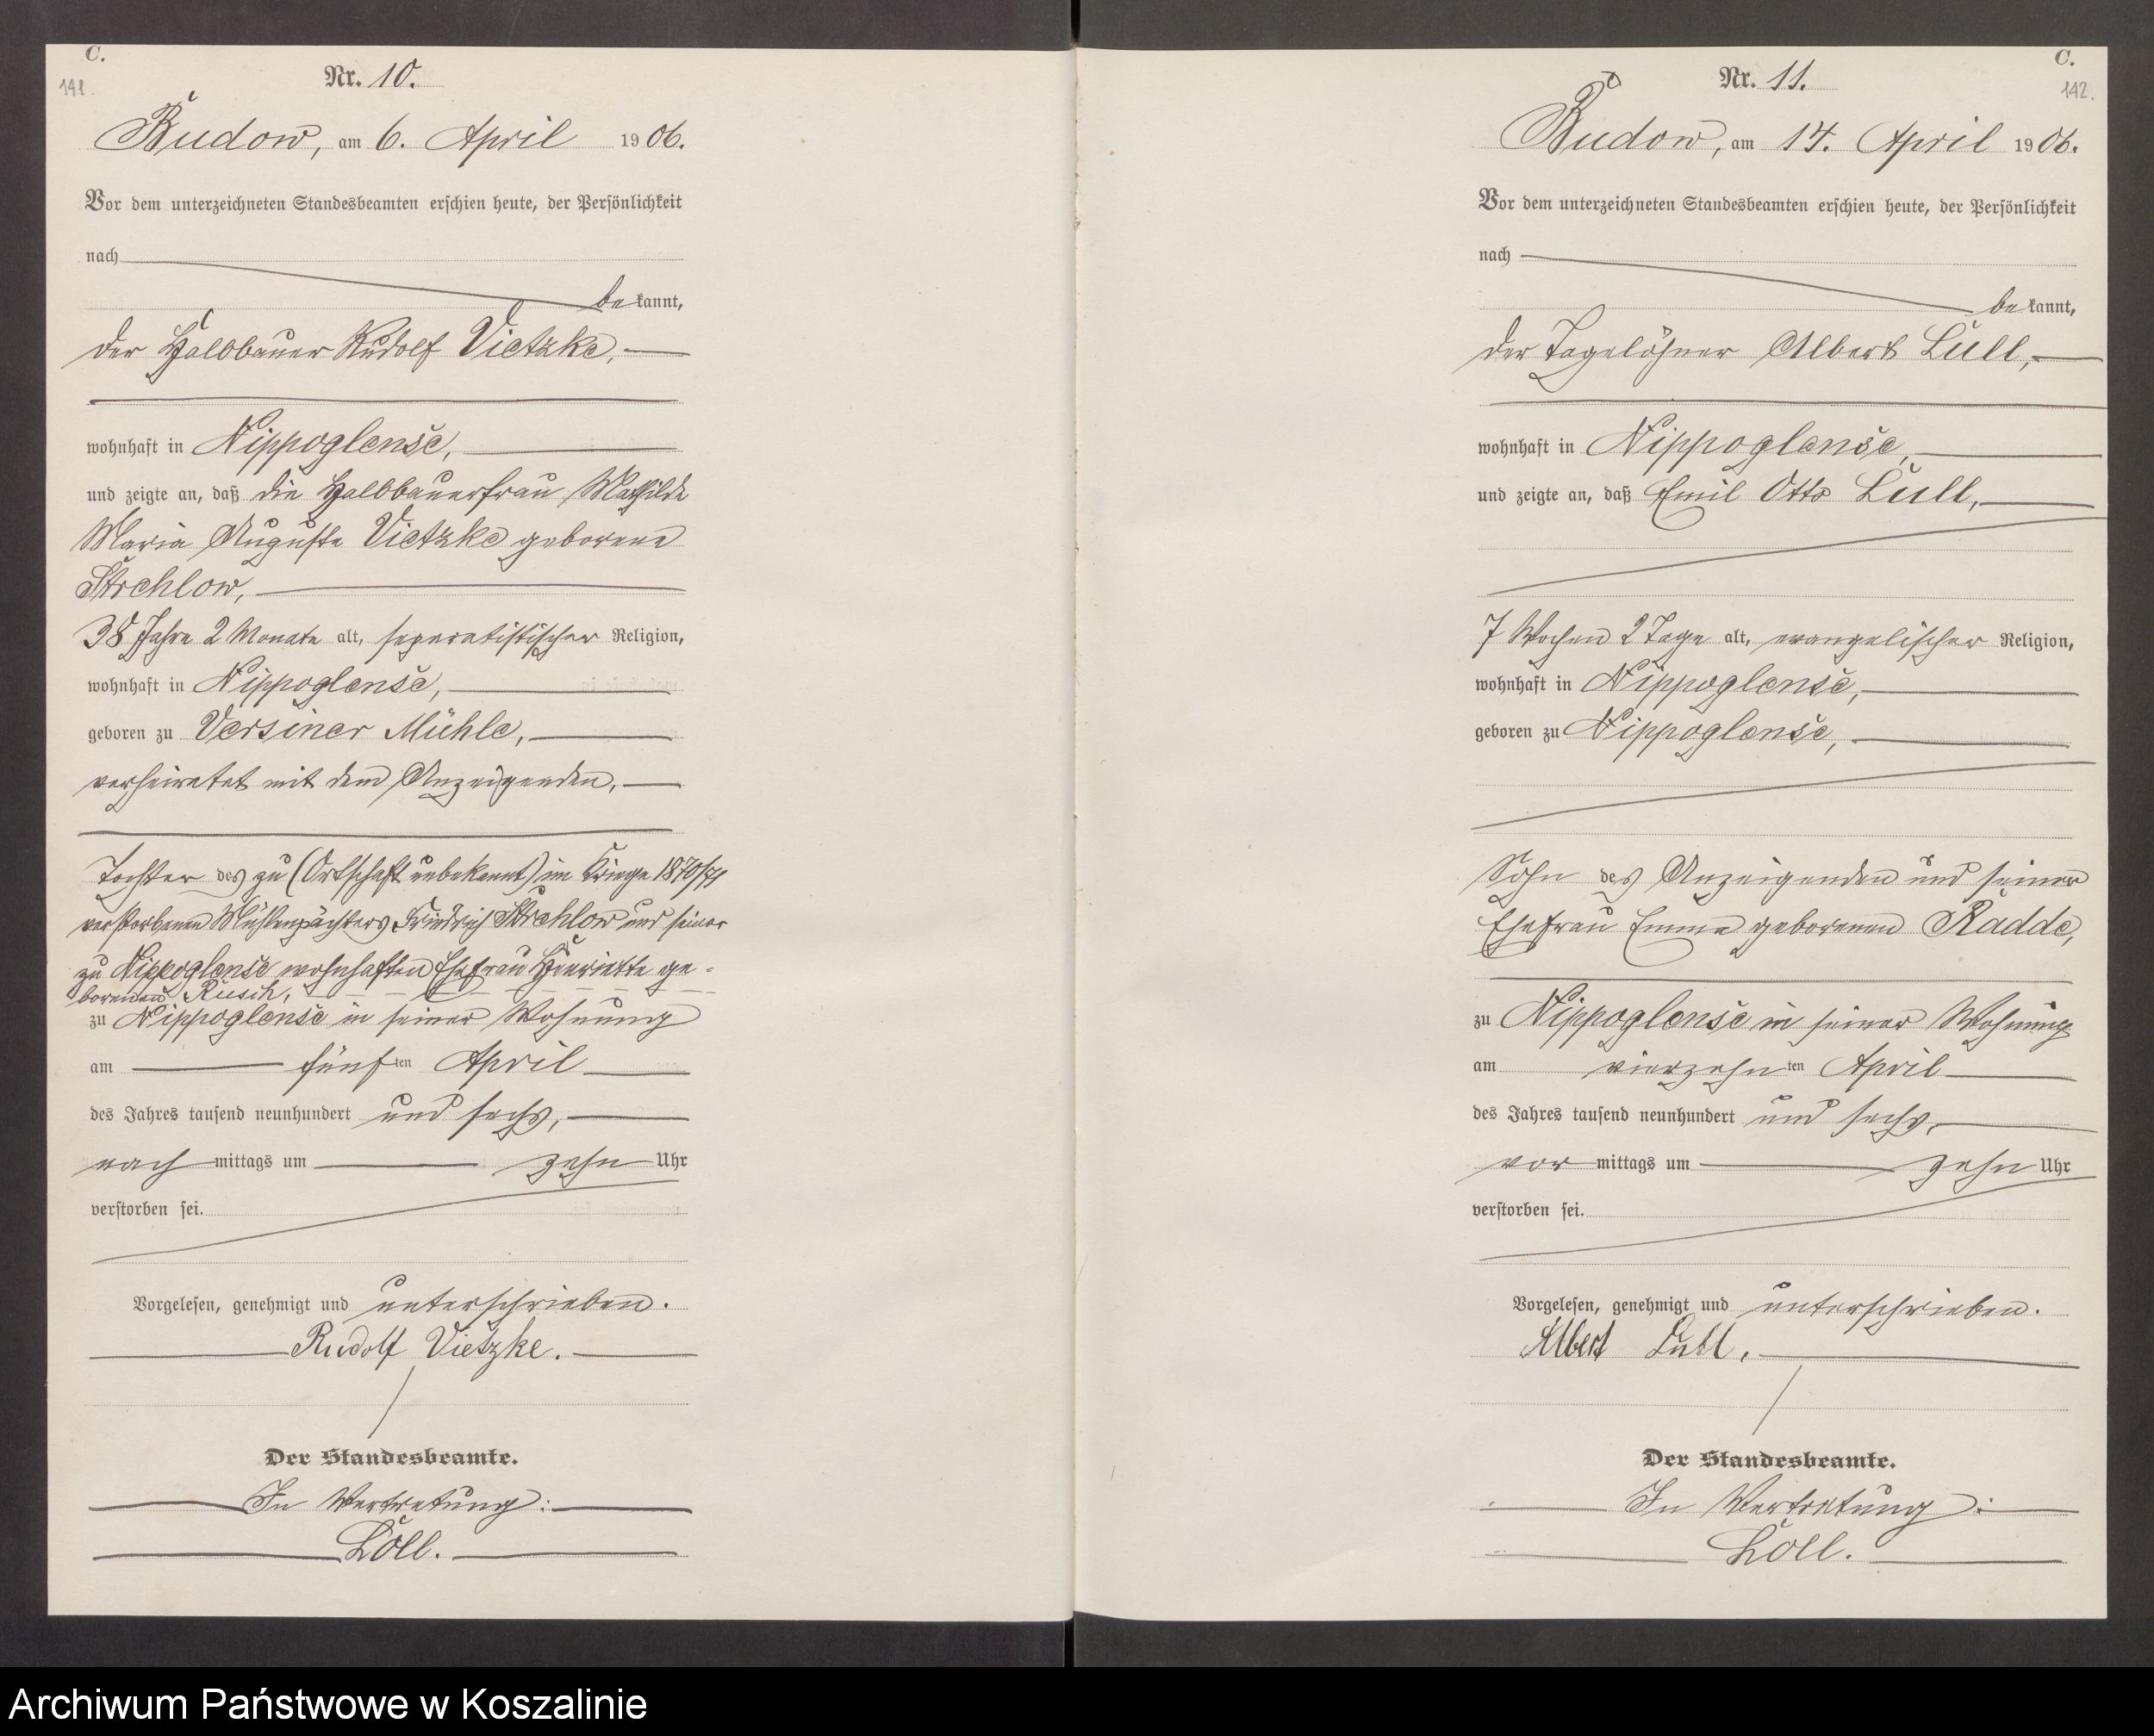 C.
141.
Nr. 10.
Budow, am 6. April 1906.
Vor dem unterzeichneten Standesbeamten erschien heute, der Persönlichkeit
nach
bekannt,
der Halbbauer Rudolf Vietzke,
wohnhaft in Nippoglense,
und zeigte an, daß die Halbbauerfrau Mathilde
Maria Auguste Vietzke geborene
Strehlow,
38 Jahre 2 Monate alt, separatistischer Religion,
wohnhaft in Nippoglense,
geboren zu Versiner Mühle,
verheiratet mit dem Anzeigenden,
Tochter des zu (Ortschaft unbekannt) im Kriege 1870/71
verstorbenen Mühlenpächters Friedrich Strehlow und seiner
zu Nippoglense wohnhaften Ehefrau Henriette ge-
borenen Rusch,
zu Nippoglense in seiner Wohnung
am fünften April
des Jahres tausend neunhundert und sechs,
nachmittags um zehn Uhr
verstorben sei.
Vorgelesen, genehmigt und unterschrieben.
Rudolf Vietzke.
Der Standesbeamte.
In Vertretung:
Löll.
C.
142.
Nr. 11.
Budow, am 14. April 1906.
Vor dem unterzeichneten Standesbeamten erschien heute, der Persönlichkeit
nach
bekannt,
der Tagelöhner Albert Lüll,
wohnhaft in Nippoglense,
und zeigte an, daß Emil Otto Lüll,
7 Wochen 2 Tage alt, evangelischer Religion,
wohnhaft in Nippoglense,
geboren zu Nippoglense,
Sohn des Anzeigenden und seiner
Ehefrau Emma geborenen Radde,
zu Nippoglense in seiner Wohnung
am vierzehnten April
des Jahres tausend neunhundert und sechs,
vormittags um zehn Uhr
verstorben sei.
Vorgelesen, genehmigt und unterschrieben.
Albert Lüll.
Der Standesbeamte.
In Vertretung:
Löll.
Archiwum Państwowe w Koszalinie